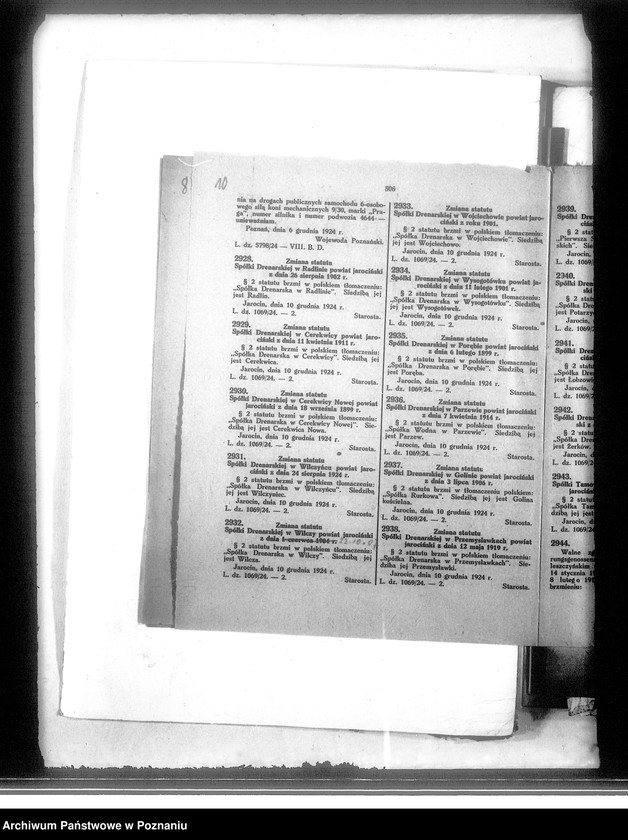 8
10
506
nia na drogach publicznych samochodu 6-osobo-
wego siłą koni mechanicznych 9/30, marki „Pra-
ga”, numer silnika i numer podwozia 4644 —
unieważniam.
Poznań, dnia 6 grudnia 1924 r.
Wojewoda Poznański.
L. dz. 5798/24 — VIII. B. D.
2928.
Zmiana statutu
Spółki Drenarskiej w Radlinie powiat jarociński
z dnia 26 sierpnia 1902 r.
§ 2 statutu brzmi w polskiem tłomaczeniu:
„Spółka Drenarska w Radlinie”. Siedzibą jej
jest Radlin.
Jarocin, dnia 10 grudnia 1924 r.
L. dz. 1069/24. — 2.
Starosta.
2929.
Zmiana statutu
Spółki Drenarskiej w Cerekwicy powiat jaro-
ciński z dnia 11 kwietnia 1911 r.
§ 2 statutu brzmi w polskiem tłumaczeniu:
„Spółka Drenarska w Cerekwicy”. Siedzibą jej
jest Cerekwica.
Jarocin, dnia 10 grudnia 1924 r.
L. dz. 1069/24. — 2.
Starosta.
2930.
Zmiana statutu
Spółki Drenarskiej w Cerekwicy Nowej powiat
jarociński z dnia 18 września 1899 r.
§ 2 statutu brzmi w polskiem tłomaczeniu:
„Spółka Drenarska w Cerekwicy Nowej”. Sie-
dzibą jej jest Cerekwica Nowa.
Jarocin, dnia 10 grudnia 1924 r.
L. dz. 1069/24. — 2.
Starosta.
2931.
Zmiana statutu
Spółki Drenarskiej w Wilczyńcu powiat jaro-
ciński z dnia 24 sierpnia 1924 r.
§ 2 statutu brzmi w polskiem tłomaczeniu:
„Spółka Drenarska w Wilczyńcu”. Siedzibą
jej jest Wilczyniec.
Jarocin, dnia 10 grudnia 1924 r.
L. dz. 1069/24. — 2.
Starosta.
2932.
Zmiana statutu
Spółki Drenarskiej w Wilczy powiat jarociński
z dnia 1 czerwca 1904 r.
§ 2 statutu brzmi w polskiem tłomaczeniu:
„Spółka Drenarska w Wilczy”. Siedzibą jej
jest Wilcza.
Jarocin, dnia 10 grudnia 1924 r.
L. dz. 1069/24. — 2.
Starosta.
2933.
Zmiana statutu
Spółki Drenarskiej w Wojciechowie powiat jaro-
ciński z roku 1901.
§ 2 statutu brzmi w polskiem tłomaczeniu:
„Spółka Drenarska w Wojciechowie”. Siedzibą
jej jest Wojciechowo.
Jarocin, dnia 10 grudnia 1924 r.
L. dz. 1069/24. — 2.
Starosta.
2934.
Zmiana statutu
Spółki Drenarskiej w Wysogotówku powiat jaro-
ciński z dnia 11 lutego 1901 r.
§ 2 statutu brzmi w polskiem tłomaczeniu:
„Spółka Drenarska w Wysogotówku”. Siedzibą
jej jest Wysogotówek.
Jarocin, dnia 10 grudnia 1924 r.
L. dz. 1069/24. — 2.
Starosta.
2935.
Zmiana statutu
Spółki Drenarskiej w Porębie powiat jarociński
z dnia 6 lutego 1899 r.
§ 2 statutu brzmi w polskiem tłomaczeniu:
„Spółka Drenarska w Porębie”. Siedzibą jej
jest Poręba.
Jarocin, dnia 10 grudnia 1924 r.
L. dz. 1069/24. — 2.
Starosta.
2936.
Zmiana statutu
Spółki Drenarskiej w Parzewie powiat jarociński
z dnia 7 kwietnia 1914 r.
§ 2 statutu brzmi w polskiem tłomaczeniu:
„Spółka Wodna w Parzewie”. Siedzibą jej
jest Parzew.
Jarocin, dnia 10 grudnia 1924 r.
L. dz. 1069/24. — 2.
Starosta.
2937.
Zmiana statutu
Spółki Drenarskiej w Golinie powiat jarociński
z dnia 3 lipca 1906 r.
§ 2 statutu brzmi w polskiem tłumaczeniu:
„Spółka Rurkowa”. Siedzibą jej jest Golina
kościelna.
Jarocin, dnia 10 grudnia 1924 r.
L. dz. 1069/24. — 2.
Starosta.
2938.
Zmiana statutu
Spółki Drenarskiej w Przemysławkach powiat
jarociński z dnia 12 maja 1919 r.
§ 2 statutu brzmi w polskiem tłomaczeniu:
„Spółka Drenarska w Przemysławkach”. Sie-
dzibą jej Przemysławki.
Jarocin, dnia 10 grudnia 1924 r.
L. dz. 1069/24. — 2.
Starosta.
2939.
Spółki Dre
§ 2 stat
„Pierwsza S
skich”. Sie
Jarocin,
L. dz. 1069/
2940.
Spółki Dren
§ 2 stat
„Spółka Dre
jest Potarzy
Jarocin,
L. dz. 1069/
2941.
Spółki Dre
§ 2 stat
„Spółka Dre
jest Łobzow
Jarocin,
L. dz. 1069/2
2942.
Spółki Dren
§ 2 statu
„Spółka Dre
jest Żerków.
Jarocin, d
L. dz. 1069/2
2943.
Spółki Tamo
jarociń
§ 2 statut
„Spółka Tam
dzibą jej jest
Jarocin, d
L. dz. 1069/24
2944.
Walne zg
rungsgenossen
leszczyńskim
14 stycznia 1
8 lutego 19
brzmieniu:
Archiwum Państwowe w Poznaniu